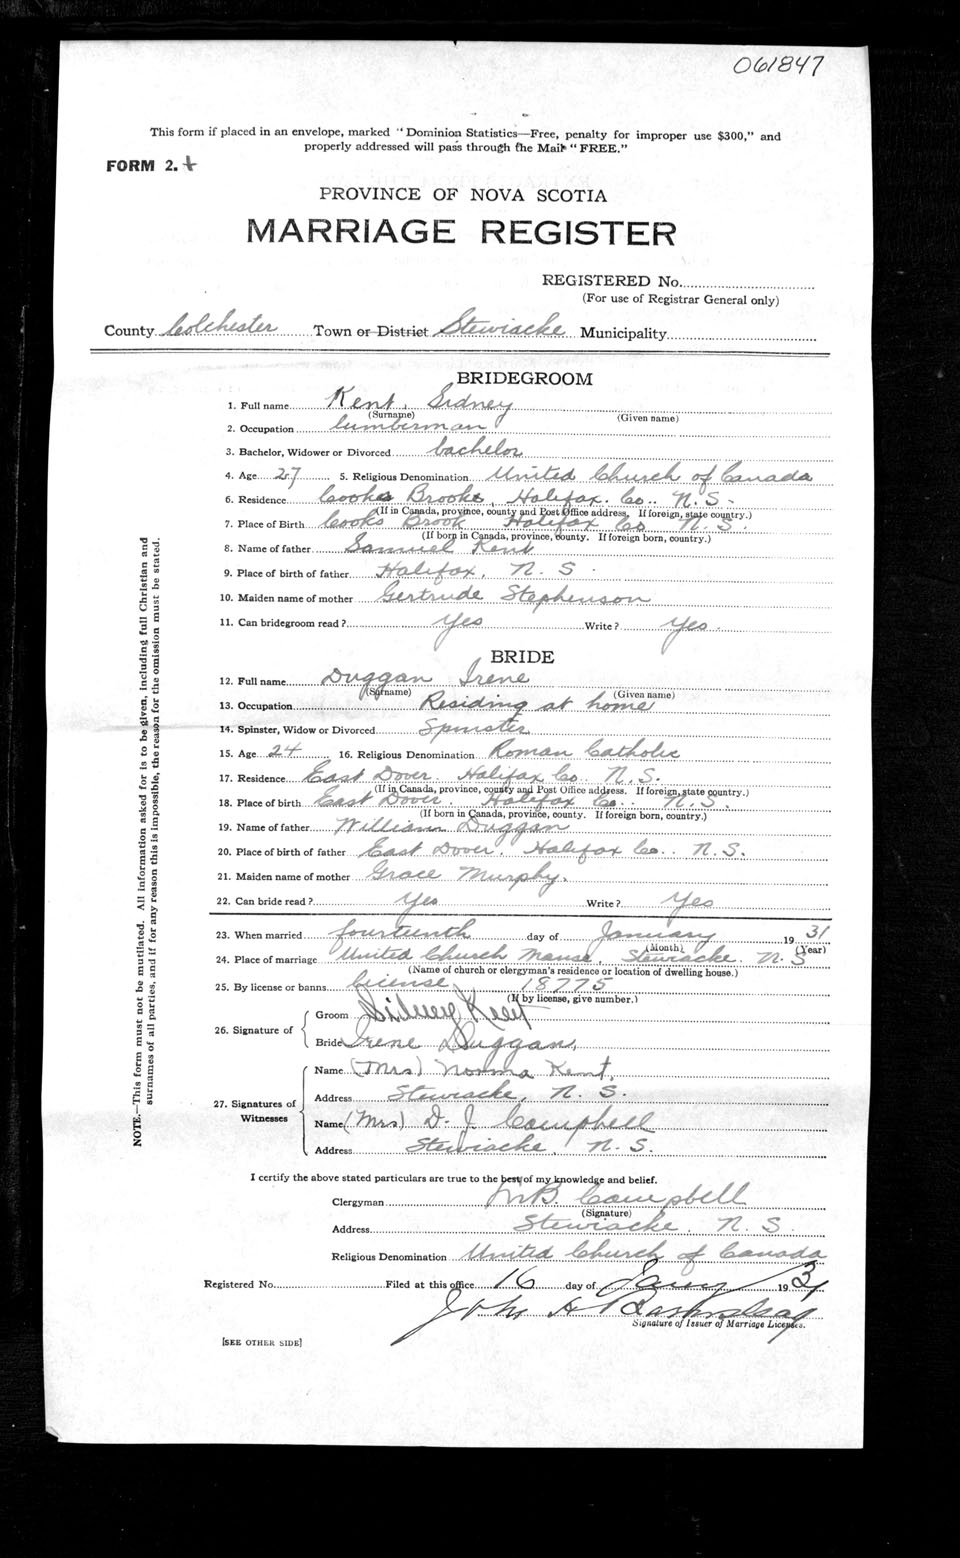 061847
This form if placed in an envelope, marked "Dominion Statistics—Free, penalty for improper use $300," and
properly addressed will pass through the Mail "FREE."
FORM 2.
PROVINCE OF NOVA SCOTIA
MARRIAGE REGISTER
REGISTERED No.
(For use of Registrar General only)
County Colchester Town or District Stewiacke Municipality
BRIDEGROOM
1. Full name Kent, Sidney
(Surname) (Given name)
2. Occupation lumberman
3. Bachelor, Widower or Divorced bachelor
4. Age 27 5. Religious Denomination United Church of Canada
6. Residence Cooks Brooke, Halifax. Co.. N.S.
(If in Canada, province, county and Post Office address. If foreign, state country.)
7. Place of Birth Cooks Brook Halifax Co N.S.
(If born in Canada, province, county. If foreign born, country.)
8. Name of father Samuel Kent
9. Place of birth of father Halifax, N.S.
10. Maiden name of mother Gertrude Stephenson
11. Can bridegroom read? Yes Write? Yes.
BRIDE
12. Full name Duggan Irene
(Surname) (Given name)
13. Occupation Residing at home
14. Spinster, Widow or Divorced Spinster
15. Age 24 16. Religious Denomination Roman Catholic
17. Residence East Dover. Halifax Co. N.S.
(If in Canada, province, county and Post Office address. If foreign, state country.)
18. Place of birth East Dover. Halifax Co.. N.S.
(If born in Canada, province, county. If foreign born, country.)
19. Name of father William Duggan
20. Place of birth of father East Dover. Halifax Co.. N.S.
21. Maiden name of mother Grace Murphy.
22. Can bride read? Yes Write? Yes
23. When married fourteenth day of January 1931
(Month) (Year)
24. Place of marriage United Church Manse, Stewiacke. N.S
(Name of church or clergyman's residence or location of dwelling house.)
25. By license or banns License, 18775
(If by license, give number.)
26. Signature of
Groom Sidney Kent
Bride Irene Duggan,
27. Signatures of Witnesses
Name (Mrs) Norma Kent,
Address Stewiacke, N.S.
Name (Mrs) D. J. Campbell
Address Stewiacke, N.S.
I certify the above stated particulars are true to the best of my knowledge and belief.
Clergyman Campbell
(Signature)
Address Stewiacke, N.S.
Religious Denomination United Church of Canada
Registered No. Filed at this office 16 day of 1931
John H
Signature of Issuer of Marriage Licenses.
[SEE OTHER SIDE]
NOTE.—This form must not be mutilated. All information asked for is to be given, including full Christian and
surnames of all parties, and if for any reason this is impossible, the reason for the omission must be stated.